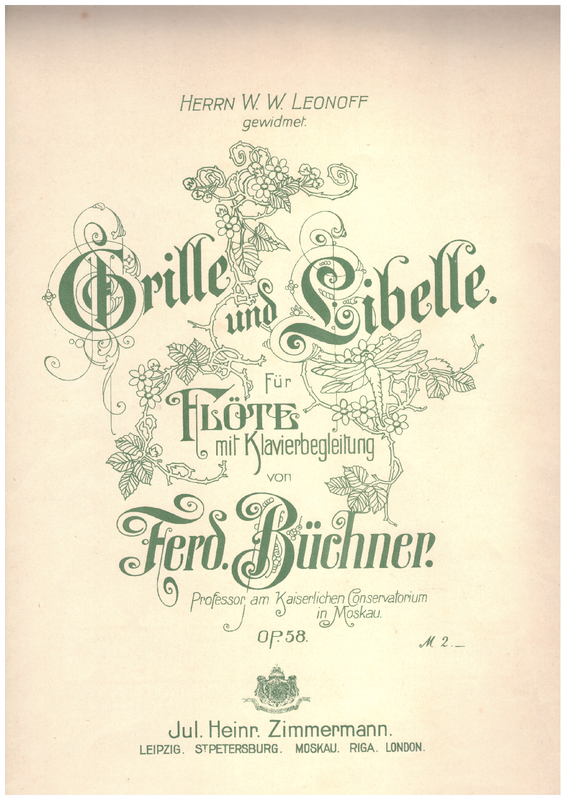 HERRN W. W. LEONOFF
gewidmet.
Grille
und Libelle.
Für
FLÖTE
mit Klavierbegleitung
von
Ferd. Büchner.
Professor am Kaiserlichen Conservatorium
in Moskau.
OP. 58.
M 2._
Jul. Heinr. Zimmermann.
LEIPZIG. ST PETERSBURG. MOSKAU. RIGA. LONDON.